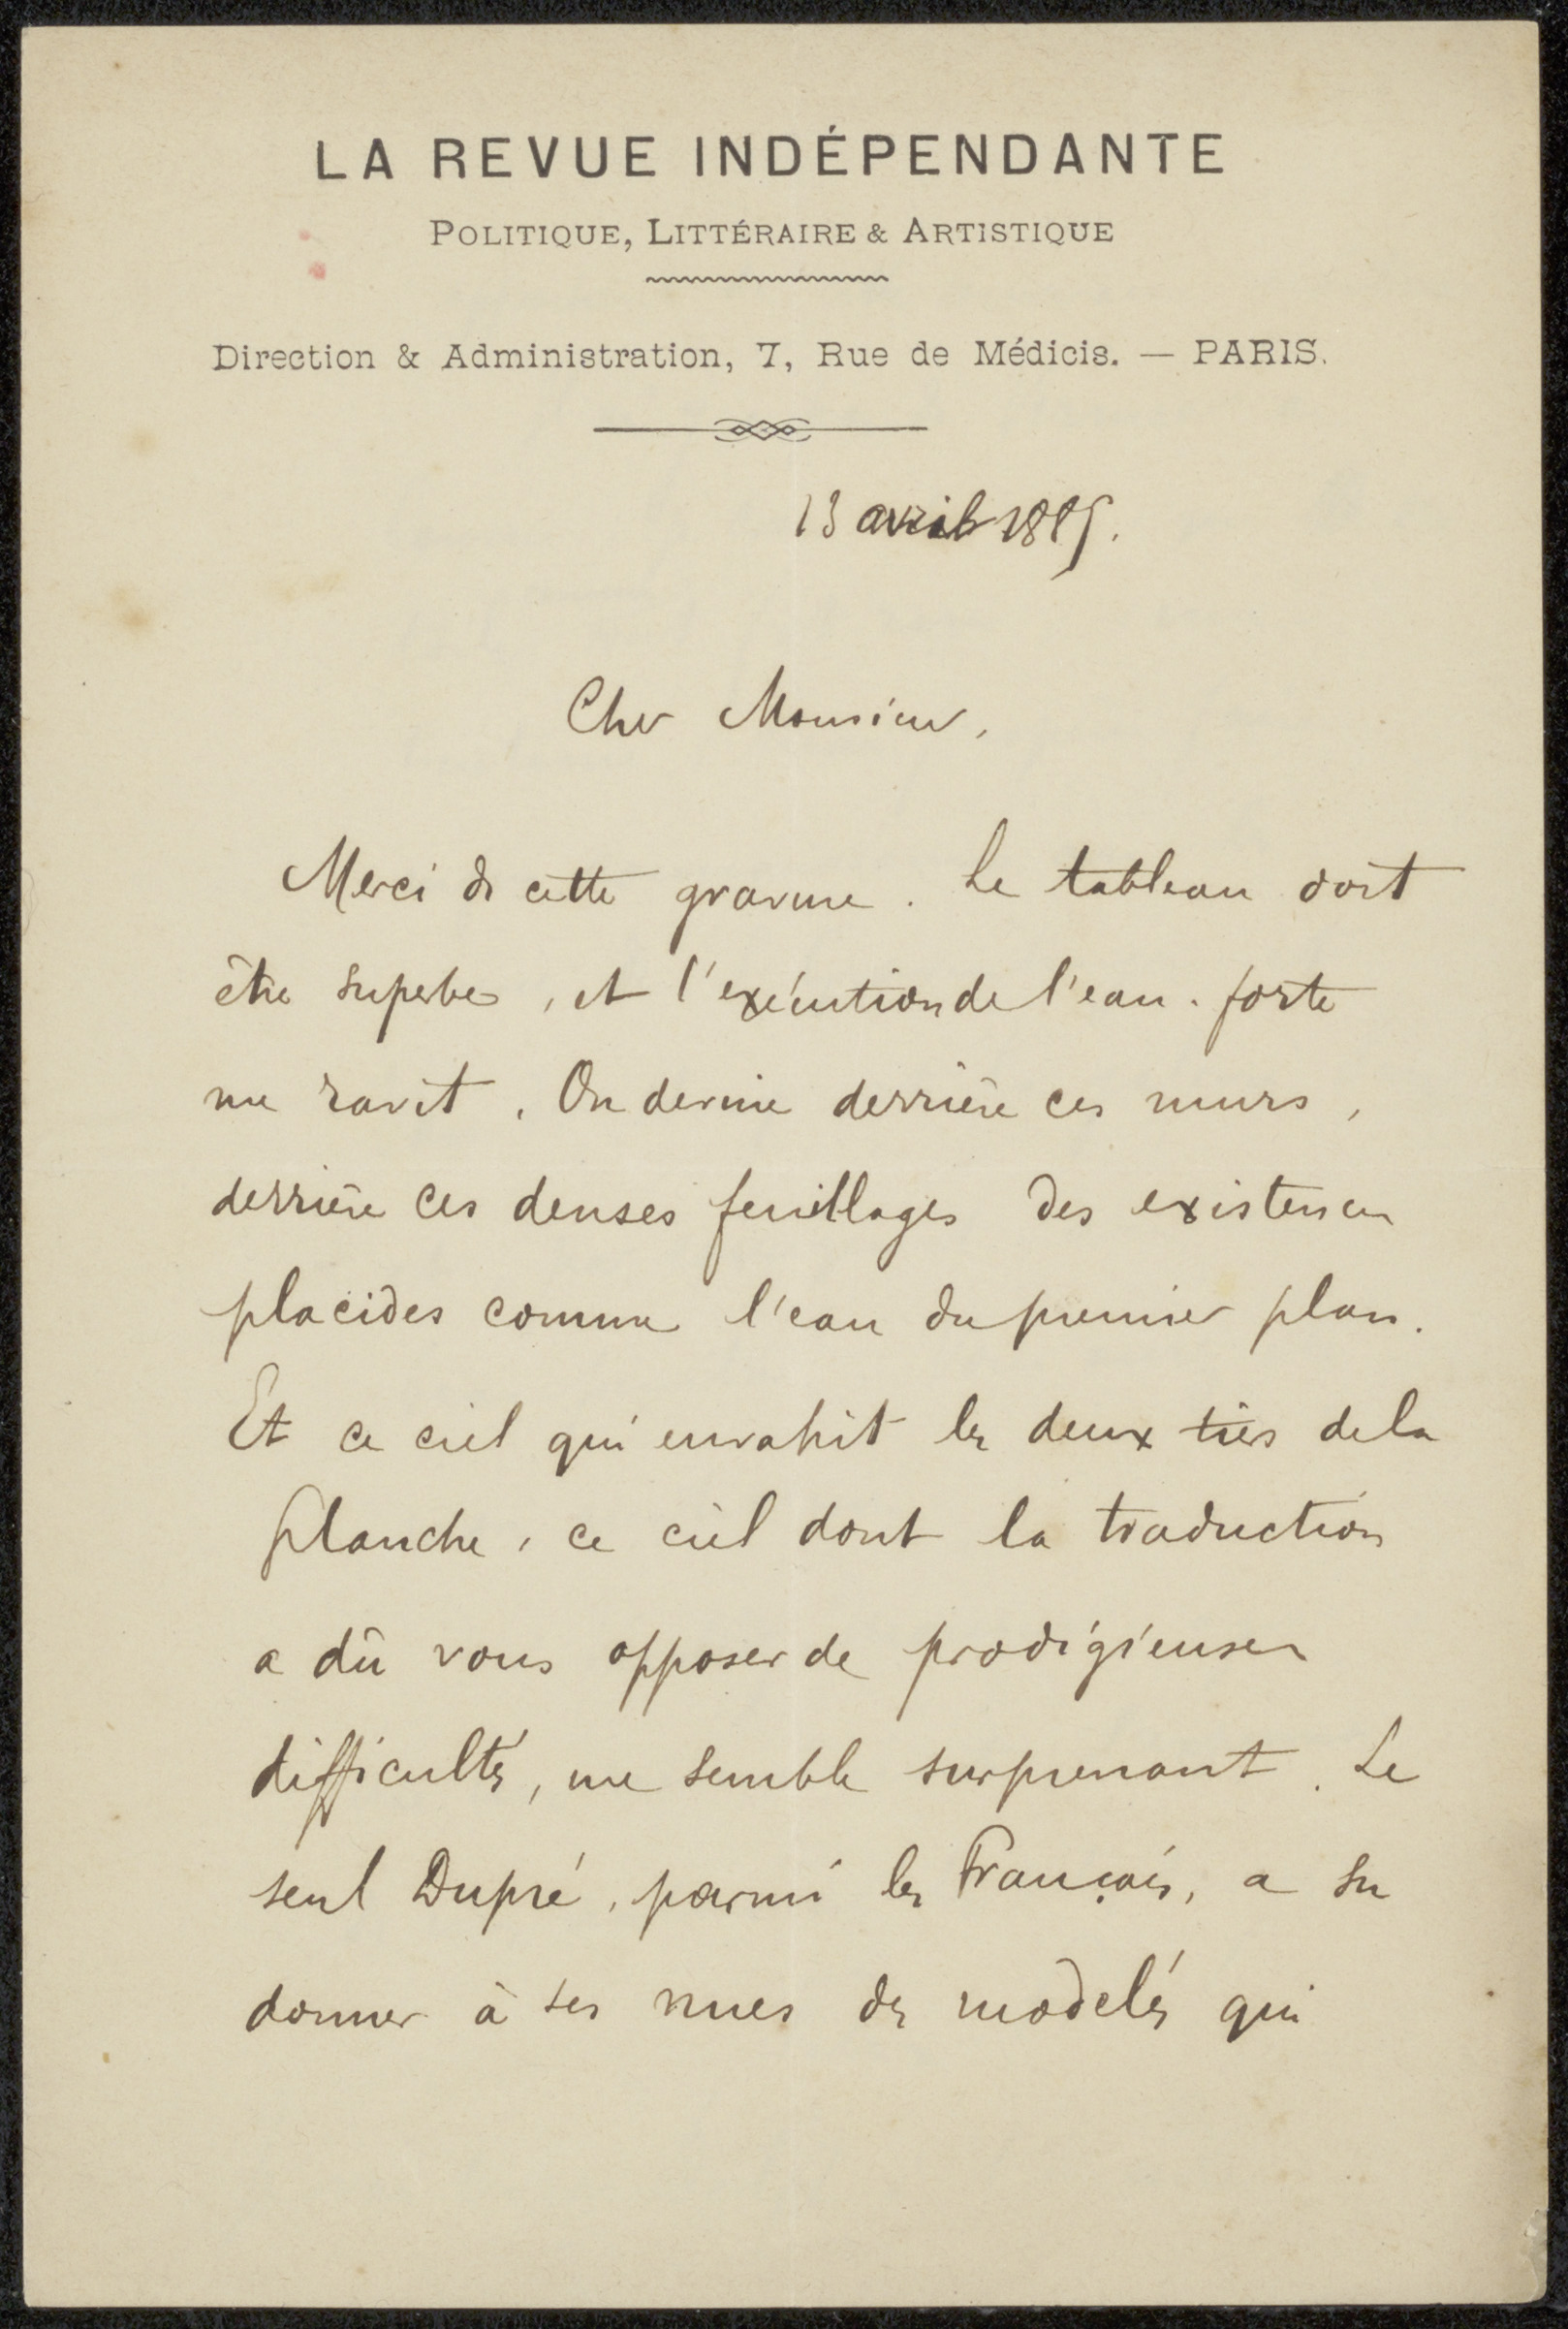 LA REVUE INDÉPENDANTE
POLITIQUE, LITTÉRAIRE & ARTISTIQUE
Direction & Administration, 7, Rue de Médicis. — PARIS.
13 avril 1885.
Cher Monsieur,
Merci de cette gravure. Le tableau doit
être superbe, et l'exécution de l'eau-forte
me ravit. On devine derrière ces murs,
derrière ces denses feuillages des existences
placides comme l'eau du premier plan.
Et ce ciel qui envahit les deux tiers de la
planche, ce ciel dont la traduction
a dû vous opposer de prodigieuses
difficultés, me semble surprenant. Le
seul Dupré, parmi les Français, a su
donner à ses nues des modelés qui